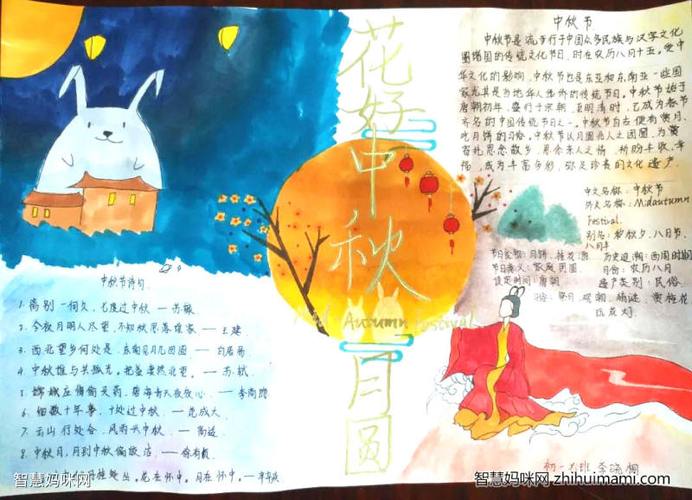 花好
中秋
月圆
Mid Autumn Festival
中秋节诗句
1. 离别一何久,七度过中秋 — 苏辙
2. 今夜月明人尽望,不知秋思落谁家 — 王建
3. 西北望乡何处是,东南见月几回圆 — 白居易
4. 中秋谁与共孤光,把盏凄然北望 — 苏轼
5. 嫦娥应悔偷灵药,碧海青天夜夜心 — 李商隐
6. 细数十年事,十处过中秋 — 范成大
8. 中秋月,月到中秋偏皎洁 — 徐有贞
中秋节
中秋节是流行于中国众多民族与汉字文化
圈诸国的传统文化节日,时在农历八月十五。受中
华文化的影响,中秋节也是东亚和东南亚一些国
家尤其是当地华人华侨的传统节日。中秋节始于
唐朝初年,盛行于宋朝,至明清时,已成为与春节
齐名的中国传统节日之一。中秋节自古便有赏月、
吃月饼的习俗。中秋节以月圆兆人之团圆,为寄
托思念故乡,思念亲人之情,祈盼丰收、幸
福,成为丰富多彩,弥足珍贵的文化遗产。
中文名称:中秋节
外文名称:Midautumn
Festival.
别名:秋夕、八月节、
八月半
节日美食:月饼、桂花酒
节日意义:家庭团圆
设定时间:唐朝
月份:农历八月
遗产类别:民俗
初一
智慧妈咪网
智慧妈咪网 zhihuimami.com